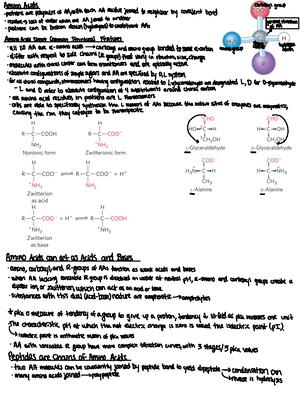 Amino Acids
proteins are polymers of AA, with each AA residue joined to neighbor by covalent bond
residue = loss of water when one AA joined to another
proteins can be broken down / hydrolyzed to constituent AAs
Amino Acids Share Common Structural Features
all 20 AA are α-amino acids → carboxyl and amino group bonded to same α-carbon
differ with respect to side chains (R groups) that vary in structure, size, charge
molecules with chiral center can form and are optically active
absolute configurations of simple sugars and AA are specified by D,L system
for all chiral compounds, stereoisomers having configuration related to L-glyceraldehyde are designated L, D for D-glyceraldehyde
L and D refer to absolute configuration of 4 substituents around chiral carbon
AA residues in proteins are L stereoisomers
cells are able to specifically synthesize the L isomers of AA because the active sites of enzymes are asymmetric,
causing the rxns they catalyze to be stereospecific
carboxyl group
COO⁻
H
R
R—C—COOH
NH₂
Nonionic form
H
R—C—COO⁻
⁺NH₃
Zwitterionic form
H
R—C—COO⁻ ⇌ R—C—COO⁻ + H⁺
⁺NH₃
NH₂
Zwitterion
as acid
H
R—C—COO⁻ + H⁺ ⇌ R—C—COOH
⁺NH₃
⁺NH₃
Zwitterion
as base
CHO
HO—C—H
CH₂OH
L-Glyceraldehyde
CHO
H—C—OH
CH₂OH
D-Glyceraldehyde
COO⁻
H₃N⁺—C—H
CH₃
L-Alanine
COO⁻
H—C—N⁺H₃
CH₃
D-Alanine
Amino Acids can act as Acids and Bases
amino, carboxyl, and R-groups of AAs function as weak acids and bases
when AA lacking ionizable R group is dissolved in water at neutral pH, α-amino and carboxyl groups create a
dipolar ion, or zwitterion, which can act as an acid or base
substances with this dual (acid-base) nature are amphoteric → ampholytes
pKa a measure of tendency of a group to give up a proton, tendency ↓ 10-fold as pKa increases one unit
the characteristic pH at which the net electric charge is zero is called the isoelectric point (pI)
isoelectric point is arithmetic mean of pKa values
AA with ionizable R group have more complex titration curves with 3 stages / 3 pKa values
Peptides are Chains of Amino Acids
two AA molecules can be covalently joined by peptide bond to yield dipeptide → condensation rxn
many amino acids joined → polypeptide
reverse is hydrolysis